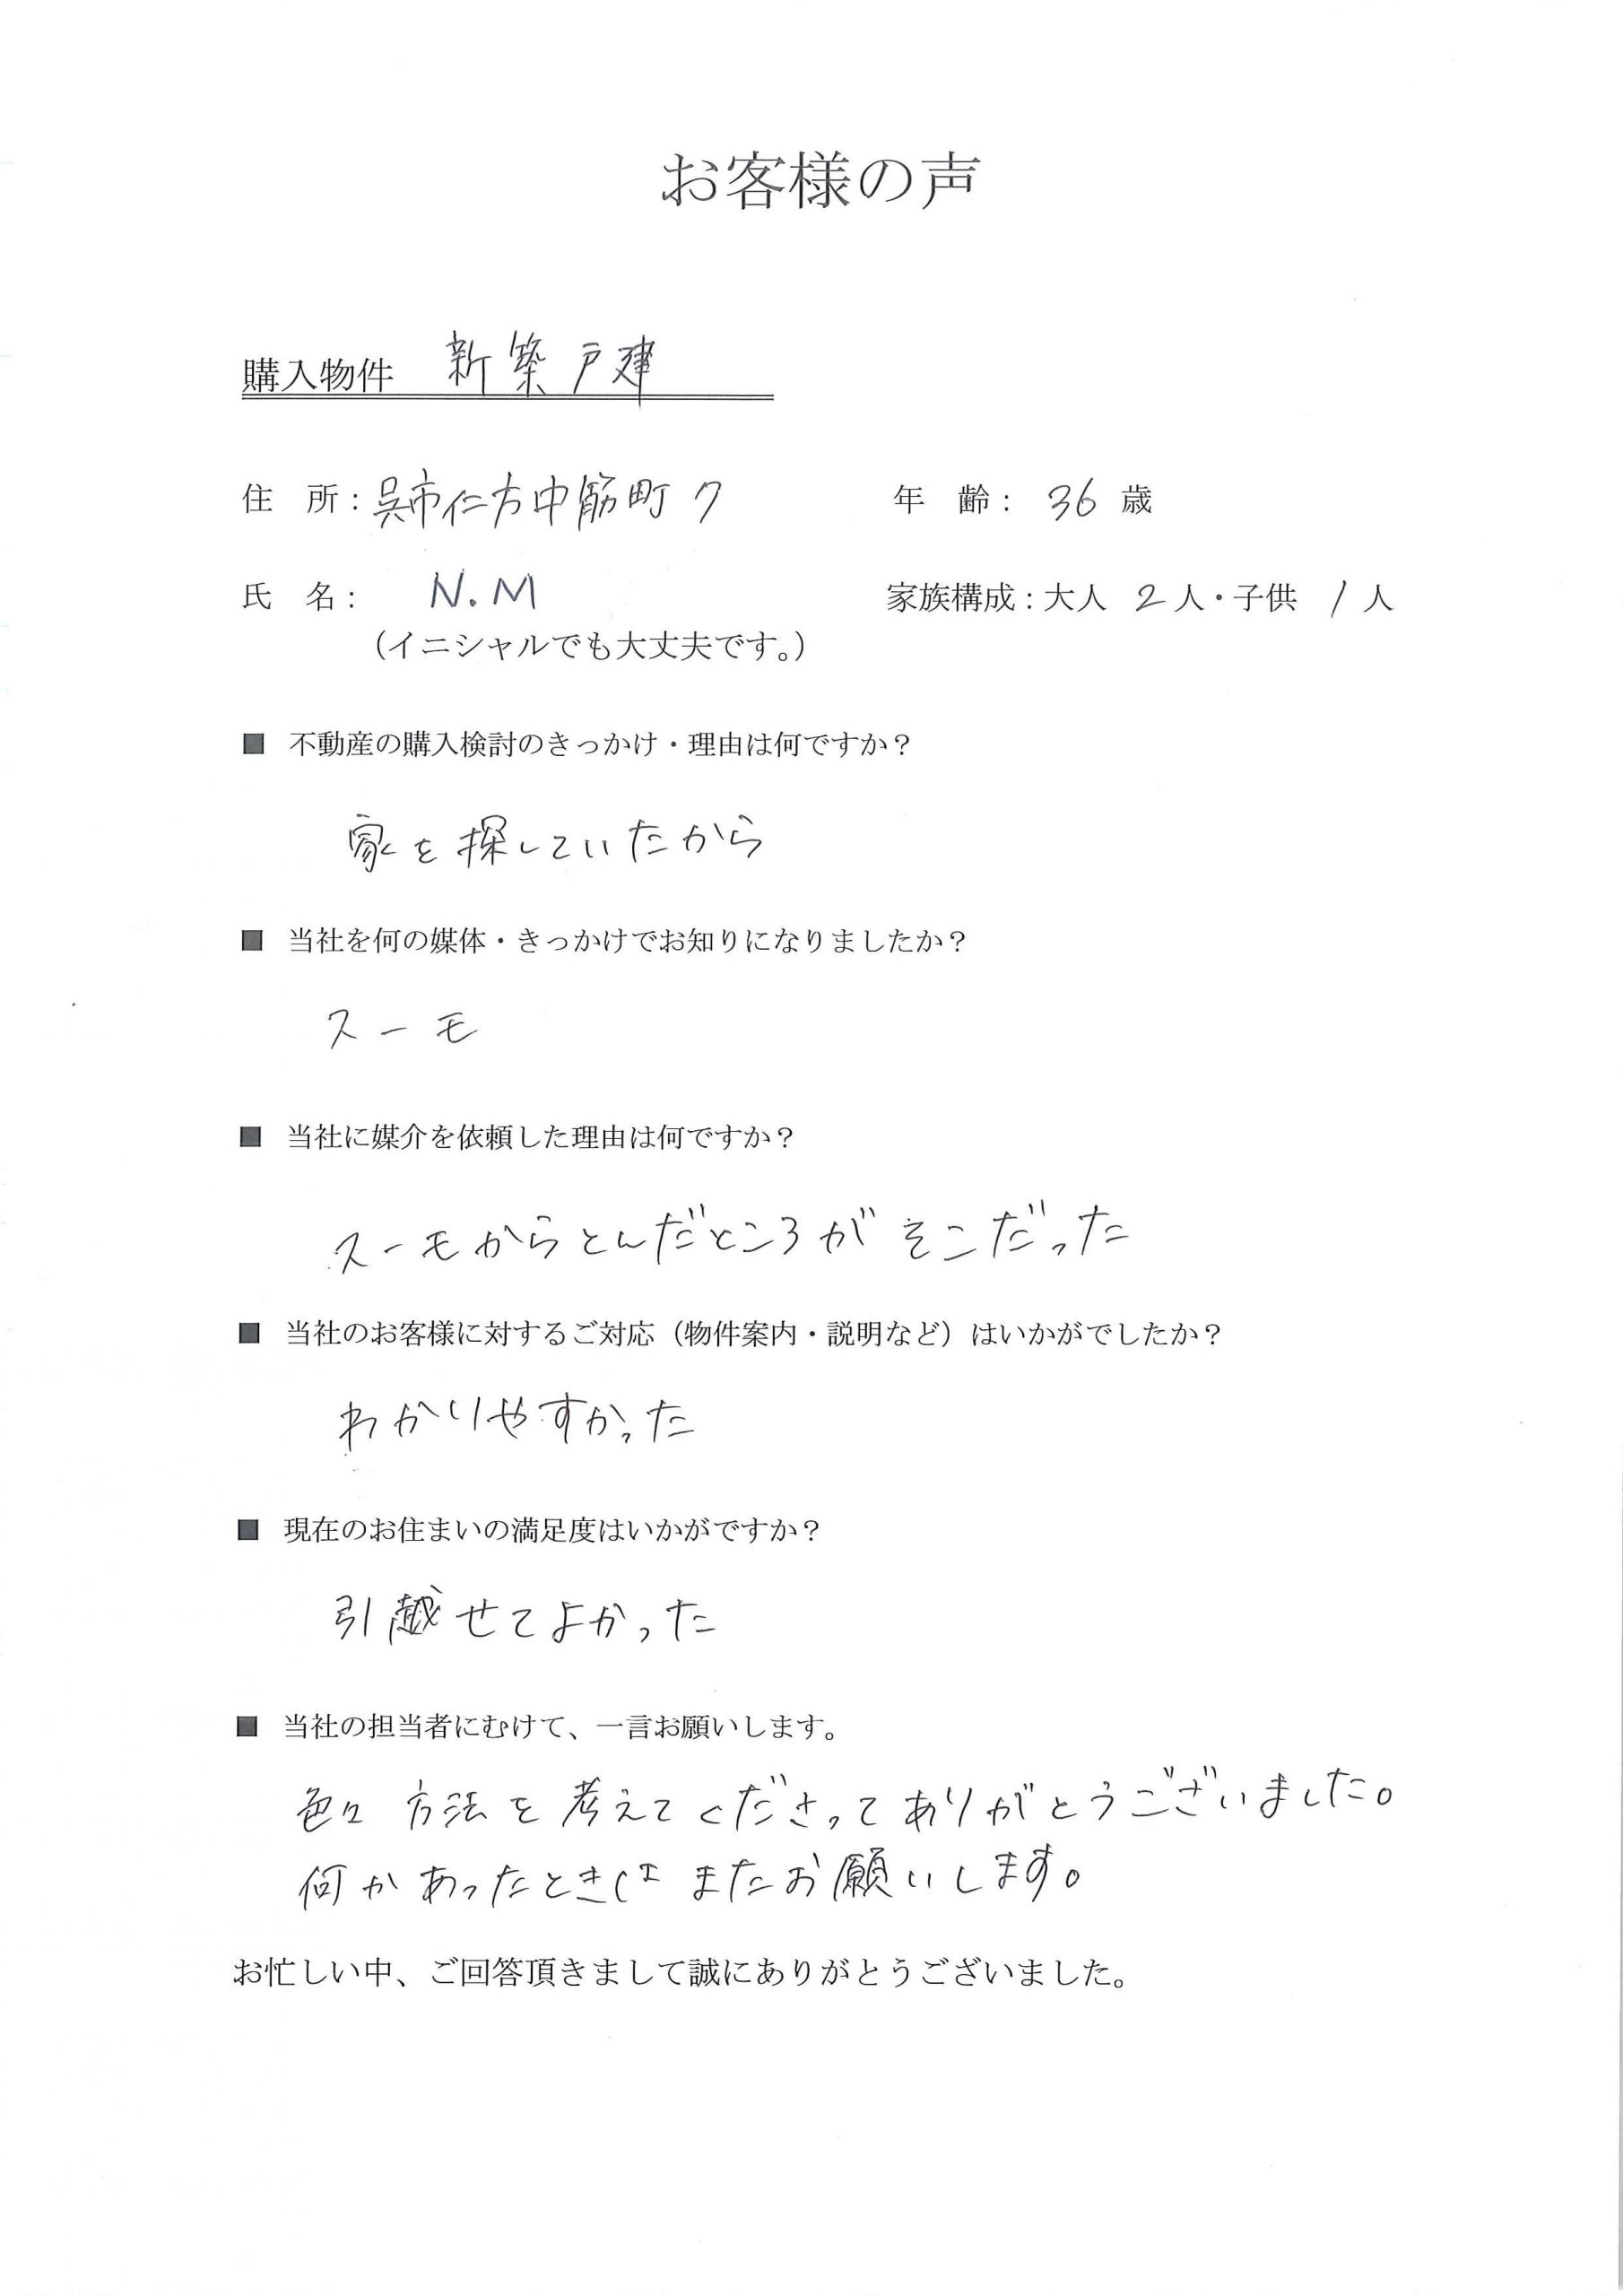 お客様の声
購入物件 新築戸建
住 所：呉市仁方中筋町 7 年 齢： 36 歳
氏 名： N.M 家族構成：大人 2 人・子供 1 人
（イニシャルでも大丈夫です。）
■ 不動産の購入検討のきっかけ・理由は何ですか？
家を探していたから
■ 当社を何の媒体・きっかけでお知りになりましたか？
スーモ
■ 当社に媒介を依頼した理由は何ですか？
スーモからとんだところがそこだった
■ 当社のお客様に対するご対応（物件案内・説明など）はいかがでしたか？
わかりやすかった
■ 現在のお住まいの満足度はいかがですか？
引越せてよかった
■ 当社の担当者にむけて、一言お願いします。
色々方法を考えてくださってありがとうございました。
何かあったときはまたお願いします。
お忙しい中、ご回答頂きまして誠にありがとうございました。